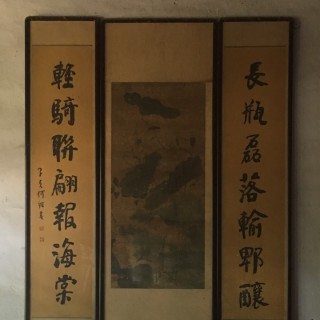 長瓶磊落輸郫釀
輕騎聯翩報海棠